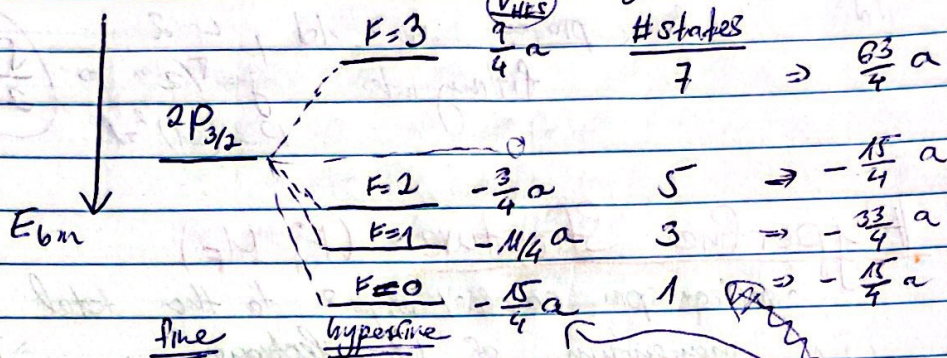 V_HFS
F=3 9/4 a #states
7 ⇒ 63/4 a
2P3/2
0
F=2 -3/4 a 5 ⇒ -15/4 a
Ebm
F=1 -11/4 a 3 ⇒ -33/4 a
F=0 -15/4 a 1 ⇒ -15/4 a
fine hyperfine